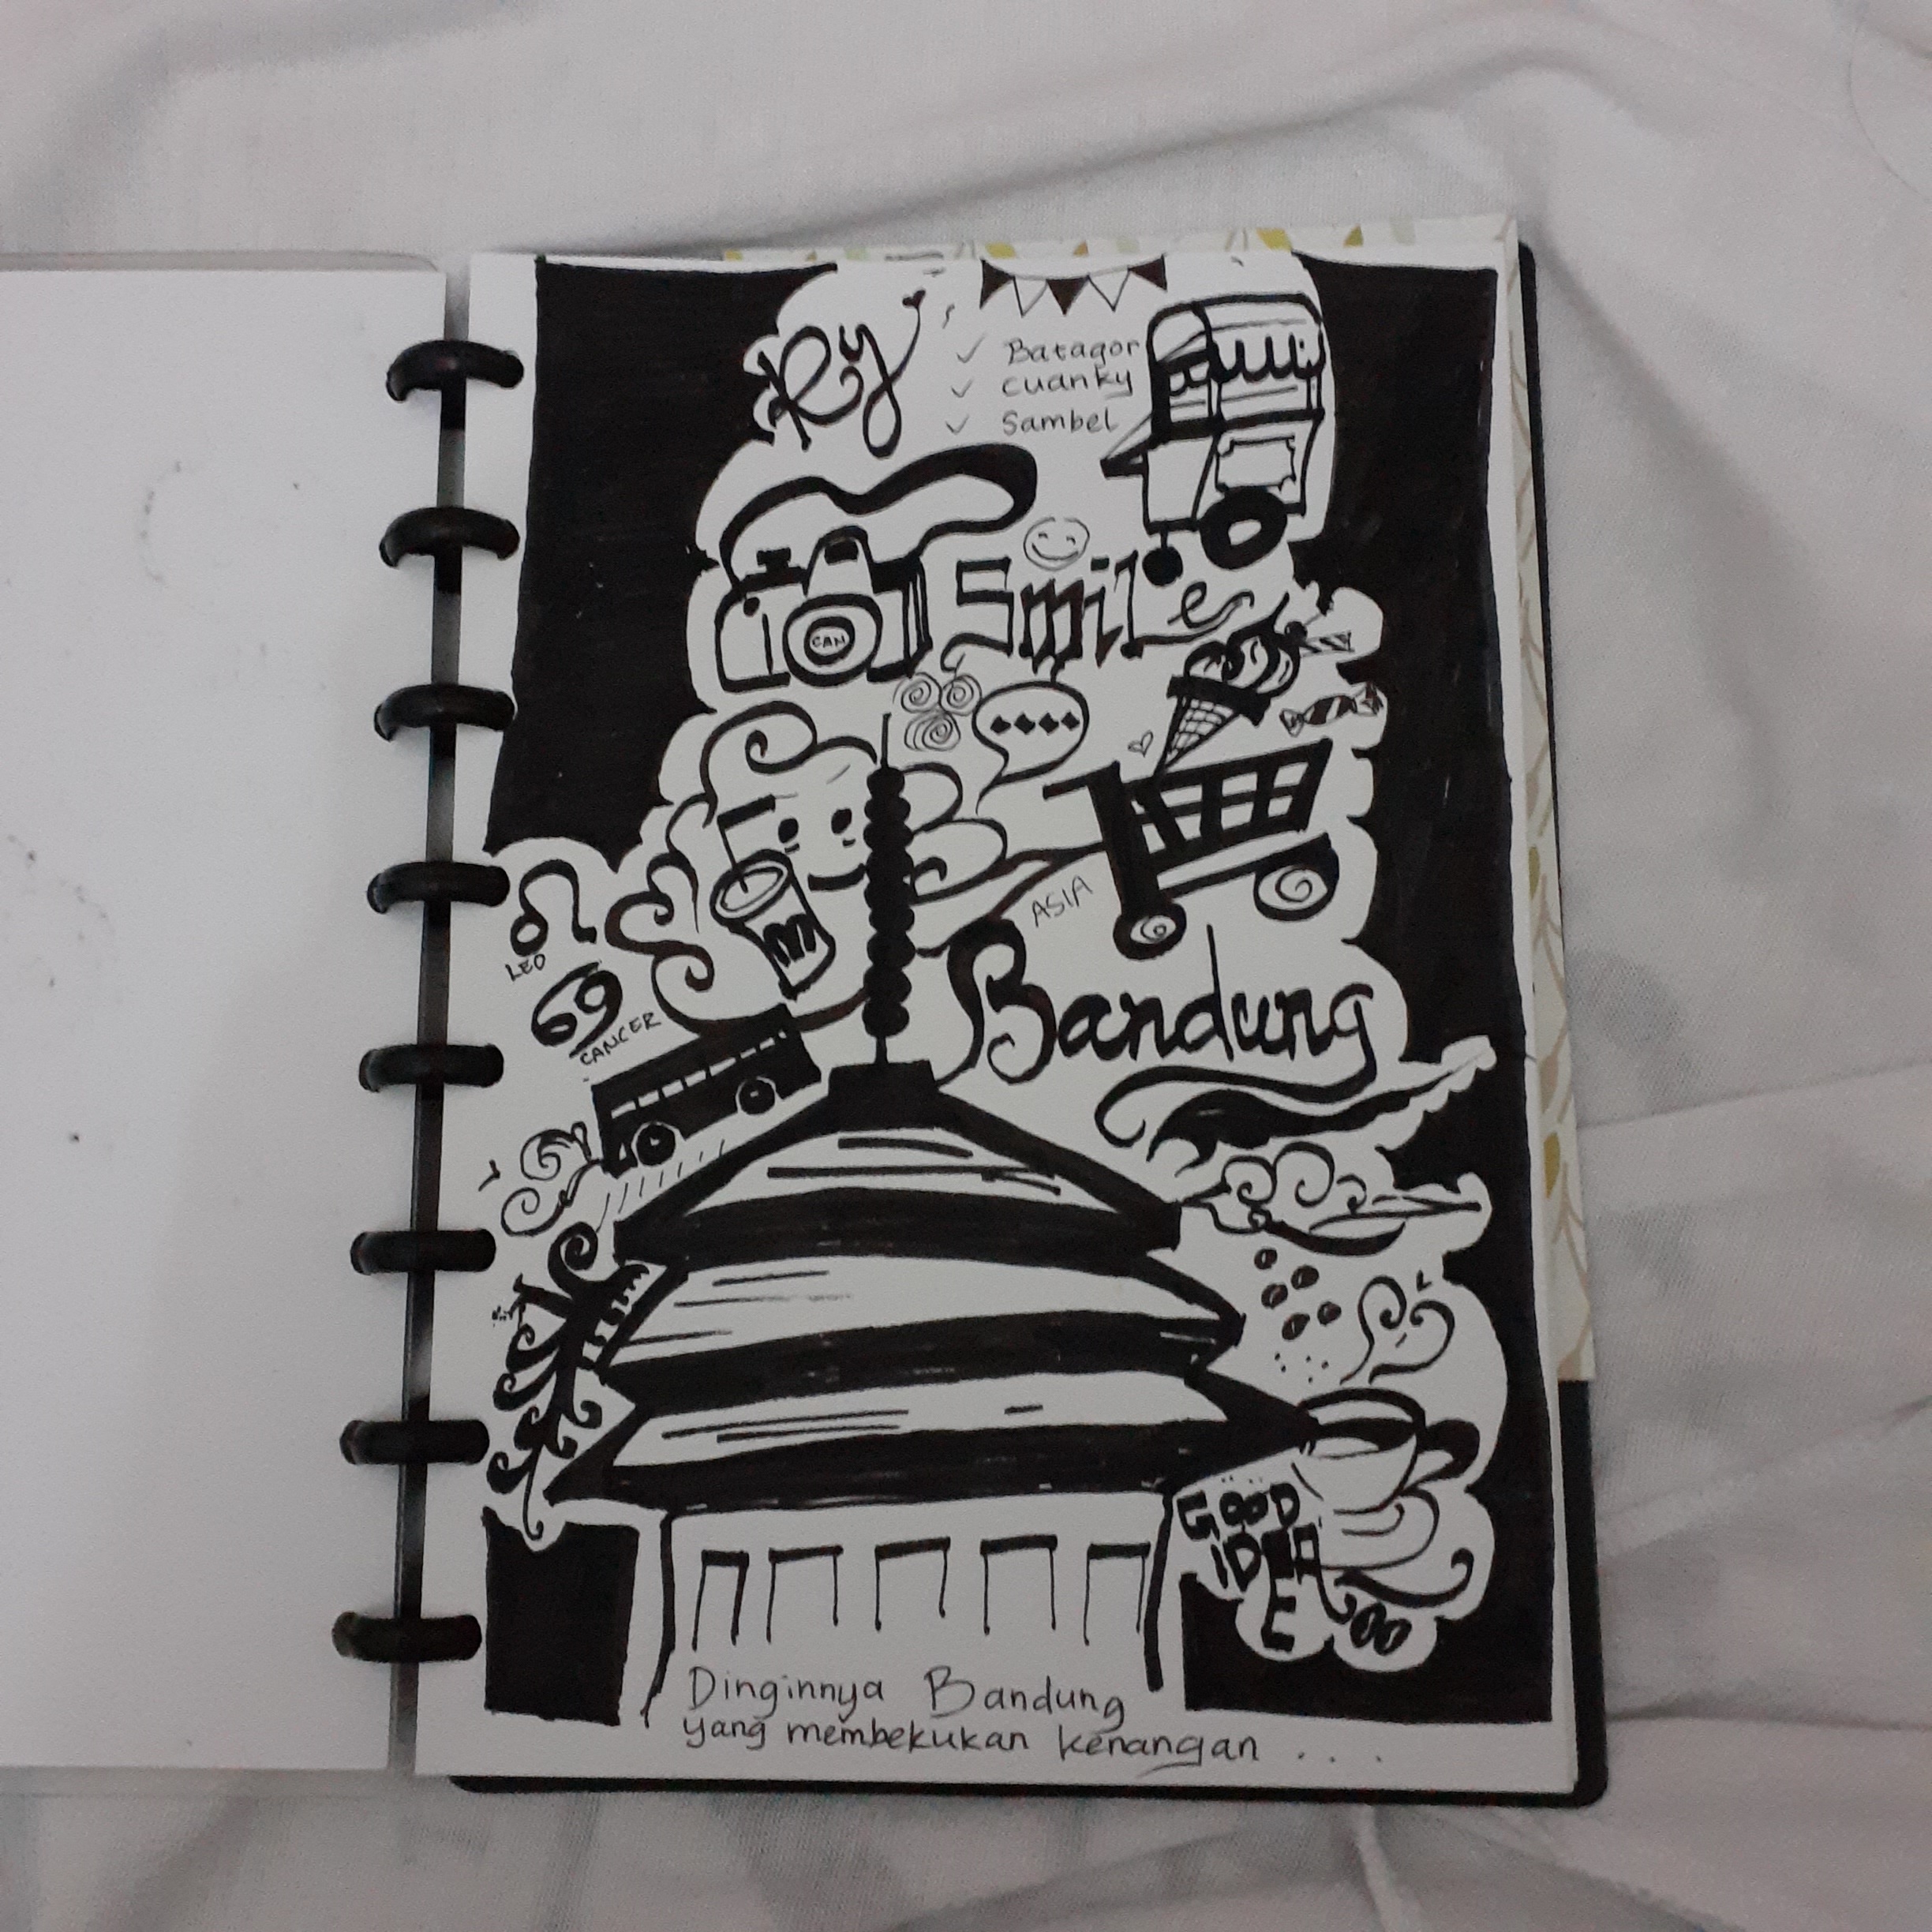 Ry
✓ Batagor
✓ cuanky
✓ Sambel
SmiLe
CAN
ASIA
LEO
CANCER
Bandung
GOOD
IDEA
Dinginnya Bandung
yang membekukan kenangan ....